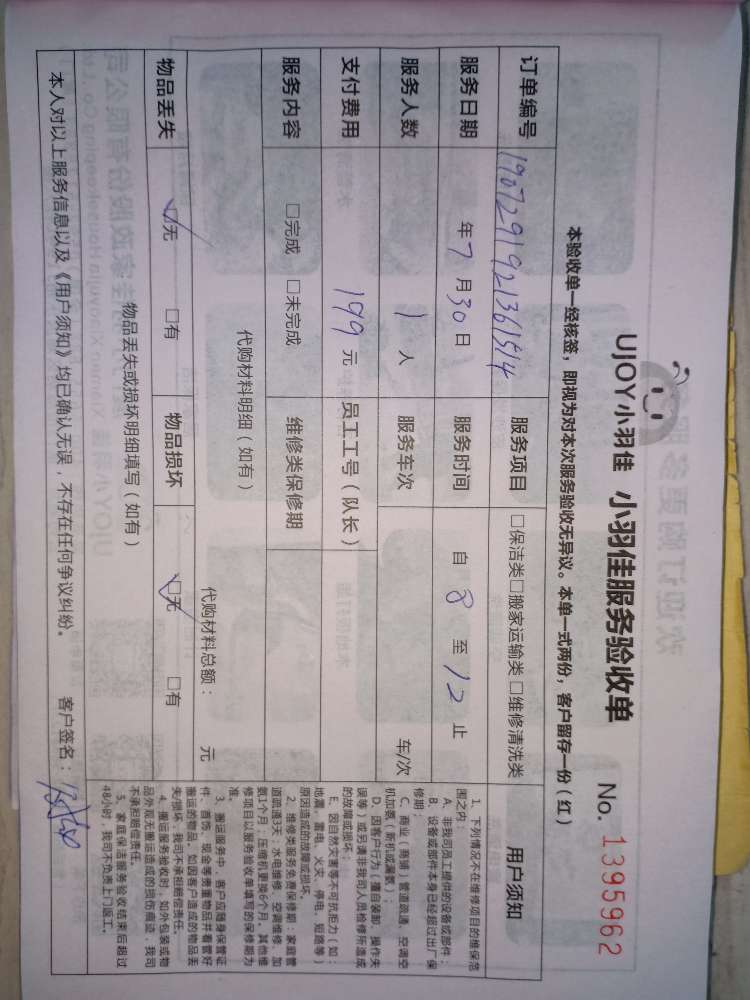 UJOY小羽佳 小羽佳服务验收单 No. 1395962
本验收单一经核签，即视为对本次服务验收无异议。本单一式两份，客户留存一份（红）
订单编号 1907291921361514 服务项目 □保洁类□搬家运输类□维修清洗类 用户须知
服务日期 年7月30日 服务时间 自 8 至 12 止
服务人数 1 人 服务车次 车/次
支付费用 199 元 员工工号（队长）
服务内容 □完成 □未完成 维修类保修期
代购材料明细（如有）
代购材料总额： 元
物品丢失 ☑无 □有 物品损坏 ☑无 □有
物品丢失或损坏明细填写（如有）
本人对以上服务信息以及《用户须知》均已确认无误，不存在任何争议纠纷。 客户签名：
1. 下列情况不在维修项目的维保范
围之内：
A. 非我司员工提供的设备或部件；
B. 设备或部件本身已经超过出厂保
修期；
C. 商业（商铺）管道疏通、空调空
机加氨（新机或漏氨）；
D. 因客户行为（擅自装卸、操作失
误等）或另请非我司人员检修所造成
的故障或损坏；
E. 因自然灾害等不可抗拒力（如：
地震、雷电、火灾、停电、短路等）
原因造成的故障或损坏。
2. 维修类服务免费保修期：家庭管
道疏通3天；水电维修、空调维修、加
氨1个月；压缩机更换6个月。其他维
修项目以服务验收单填写的保修期为
准。
3. 搬运服务中，客户应随身保管证
件、首饰、现金等贵重物品并看管好
搬运的物品。如因客户造成的物品丢
失/损坏，我司不承担赔偿责任。
4. 搬运服务验收时，如外包装或物
品外观无搬运造成的损伤痕迹，我司
不承担赔偿责任。
5. 家庭保洁服务验收结束后超过
48小时，我司不负责上门返工。